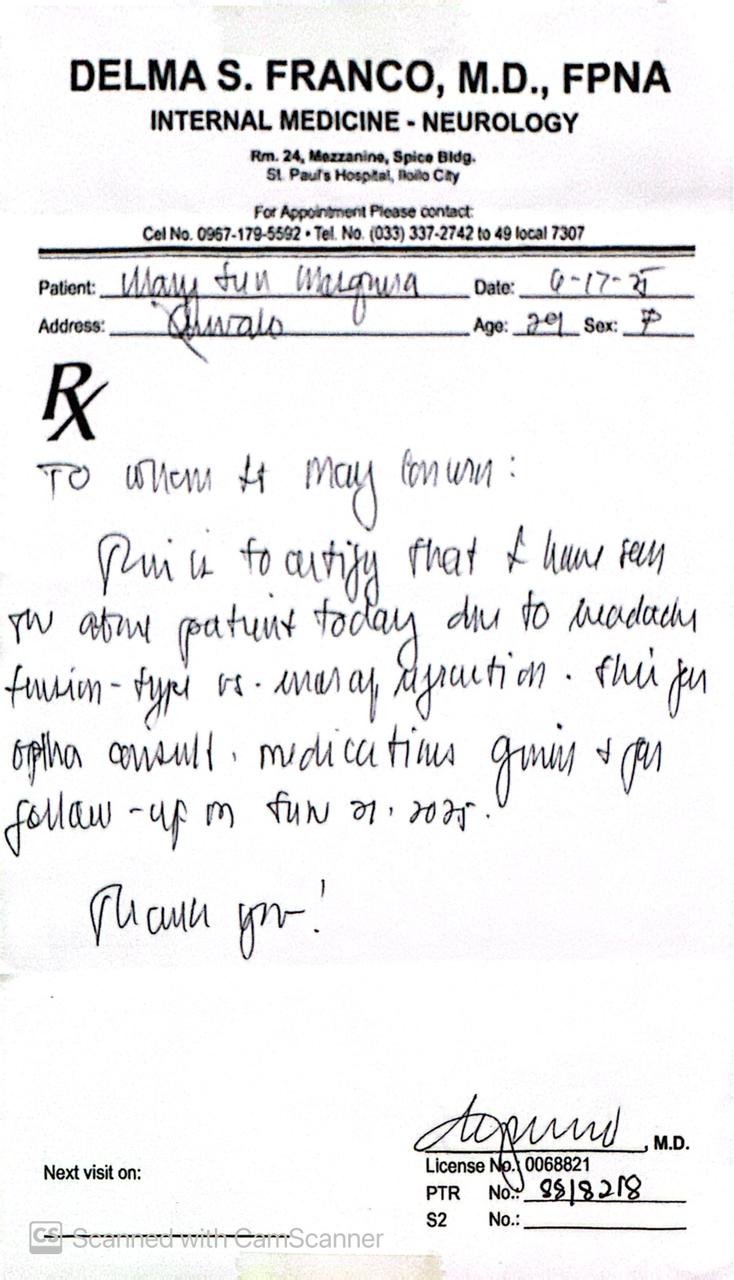 DELMA S. FRANCO, M.D., FPNA
INTERNAL MEDICINE - NEUROLOGY
Rm. 24, Mezzanine, Spice Bldg.
St. Paul's Hospital, Iloilo City
For Appointment Please contact:
Cel No. 0967-179-5592 • Tel. No. (033) 337-2742 to 49 local 7307
Patient: Mary Jun Date: 6-17-25
Address: Age: 29 Sex: F
Rx
To whom it may concern:
This is to certify that I have seen
the above patient today due to headache
tension-type vs. error of refraction. This for
optha consult. medications given & for
follow-up on June 21, 2025.
Thank you!
M.D.
License No.: 0068821
Next visit on:
PTR No.: 8818218
S2 No.:
CS Scanned with CamScanner